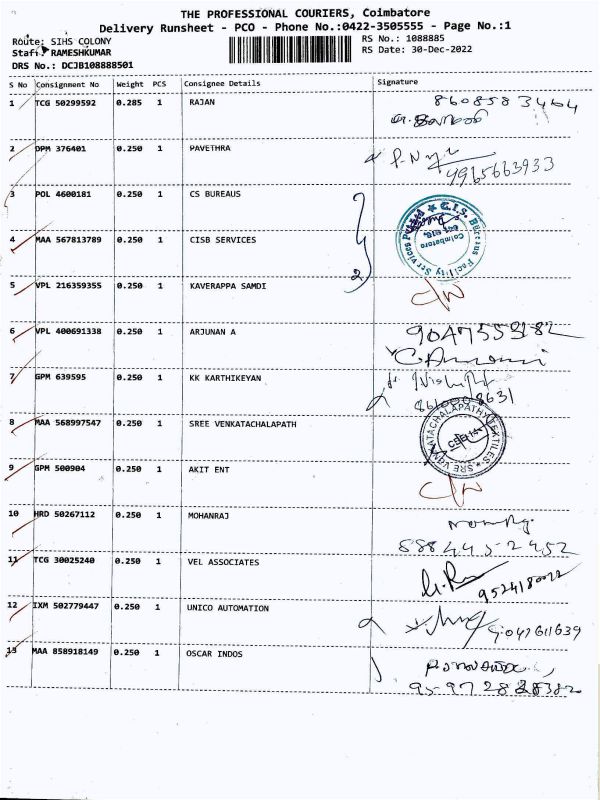 THE PROFESSIONAL COURIERS, Coimbatore
Delivery Runsheet - PCO - Phone No.:0422-3505555 - Page No.:1
Route: SIHS COLONY
RS No.: 1088885
Staff: RAMESHKUMAR
RS Date: 30-Dec-2022
DRS No.: DCJB108888501
S No Consignment No Weight PCS Consignee Details Signature
1 TCG 50299592 0.285 1 RAJAN 8608583464
2 DPM 376401 0.250 1 PAVETHRA
9965663933
3 POL 4600181 0.250 1 CS BUREAUS
4 MAA 567813789 0.250 1 CISB SERVICES
Coimbatore
5 VPL 216359355 0.250 1 KAVERAPPA SAMDI
6 VPL 400691338 0.250 1 ARJUNAN A
7 GPM 639595 0.250 1 KK KARTHIKEYAN
8 MAA 568997547 0.250 1 SREE VENKATACHALAPATH
SRE VENKATACHALAPATHY TEXTILES
9 GPM 500904 0.250 1 AKIT ENT
10 HRD 50267112 0.250 1 MOHANRAJ
888445-2452
11 TCG 30025240 0.250 1 VEL ASSOCIATES
9524180022
12 IXM 502779447 0.250 1 UNICO AUTOMATION
9047611639
13 MAA 858918149 0.250 1 OSCAR INDOS